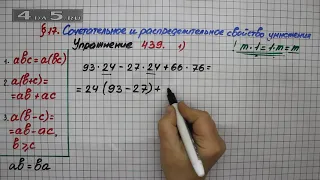 4 ДЗ.RU
§17. Сочетательное и распределительное свойство умножения
Упражнение 439. 1)
! m·1=1·m=m
1. abc = a(bc)
2. a(b+c)=
=ab+ac
3. a(b-c)=
=ab-ac,
b>c
ab=ba
93·24-27·24+66·76=
=24(93-27)+